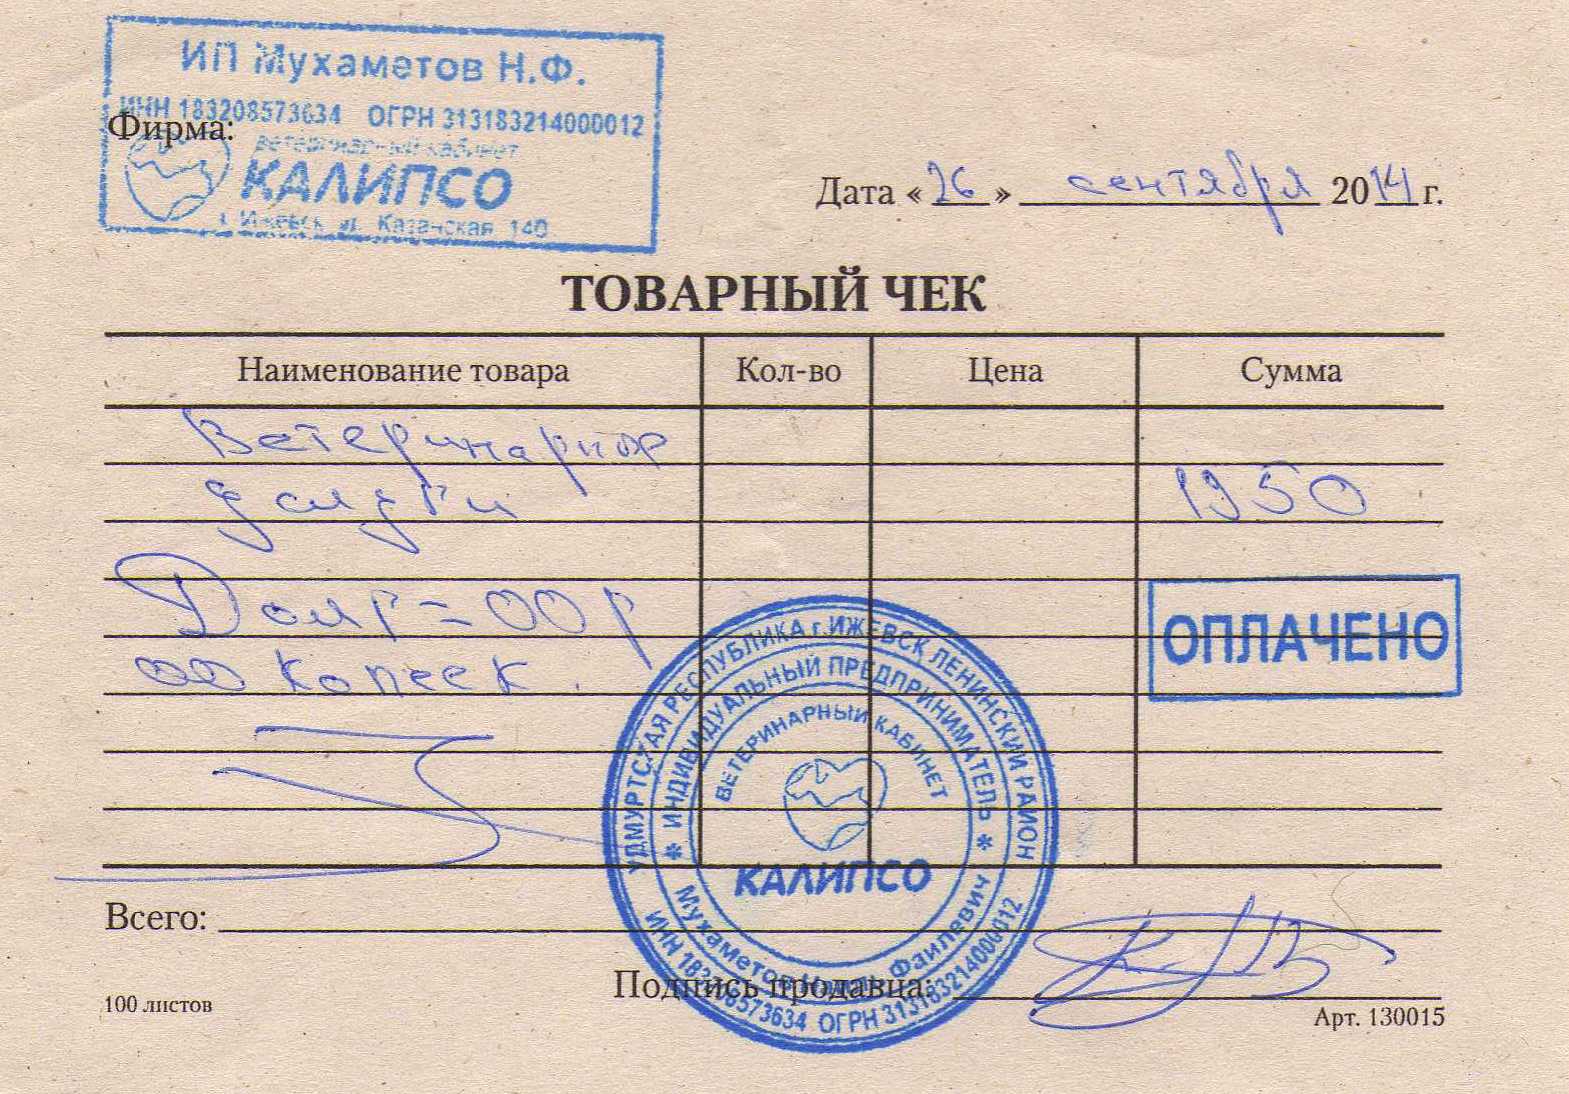 ИП Мухаметов Н.Ф.
ИНН 183208573634 ОГРН 313183214000012
Фирма:
ветеринарный кабинет
КАЛИПСО
г. Ижевск ул. Казанская 140
Дата «26» сентября 2014 г.
ТОВАРНЫЙ ЧЕК
Наименование товара Кол-во Цена Сумма
Ветеринарные
услуги 1950
Долг = 00 р
00 копеек.
ОПЛАЧЕНО
УДМУРТСКАЯ РЕСПУБЛИКА г.ИЖЕВСК ЛЕНИНСКИЙ РАЙОН
* ИНДИВИДУАЛЬНЫЙ ПРЕДПРИНИМАТЕЛЬ *
ВЕТЕРИНАРНЫЙ КАБИНЕТ
КАЛИПСО
Мухаметов Наиль Фаилевич
ИНН 183208573634 ОГРН 313183214000012
Всего:
Подпись продавца:
100 листов
Арт. 130015